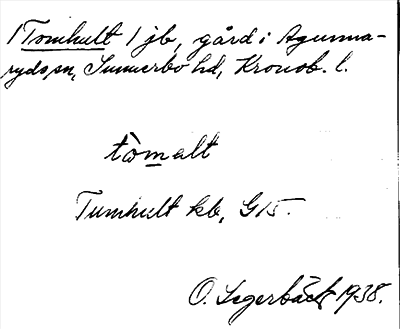 /Tomhult / jb, gård i Agunna-
ryds sn, Sunnerbo hd, Kronob. l.
tòmalt
Tumhult kb, G 15.
O. Segerbäck 1938.